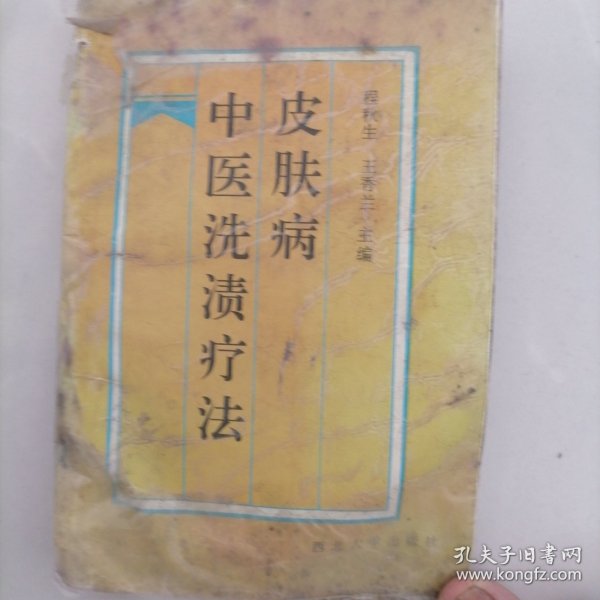 程秋生 王香兰 主编
皮肤病
中医洗渍疗法
西北大学出版社
孔夫子旧书网
www.kongfz.com